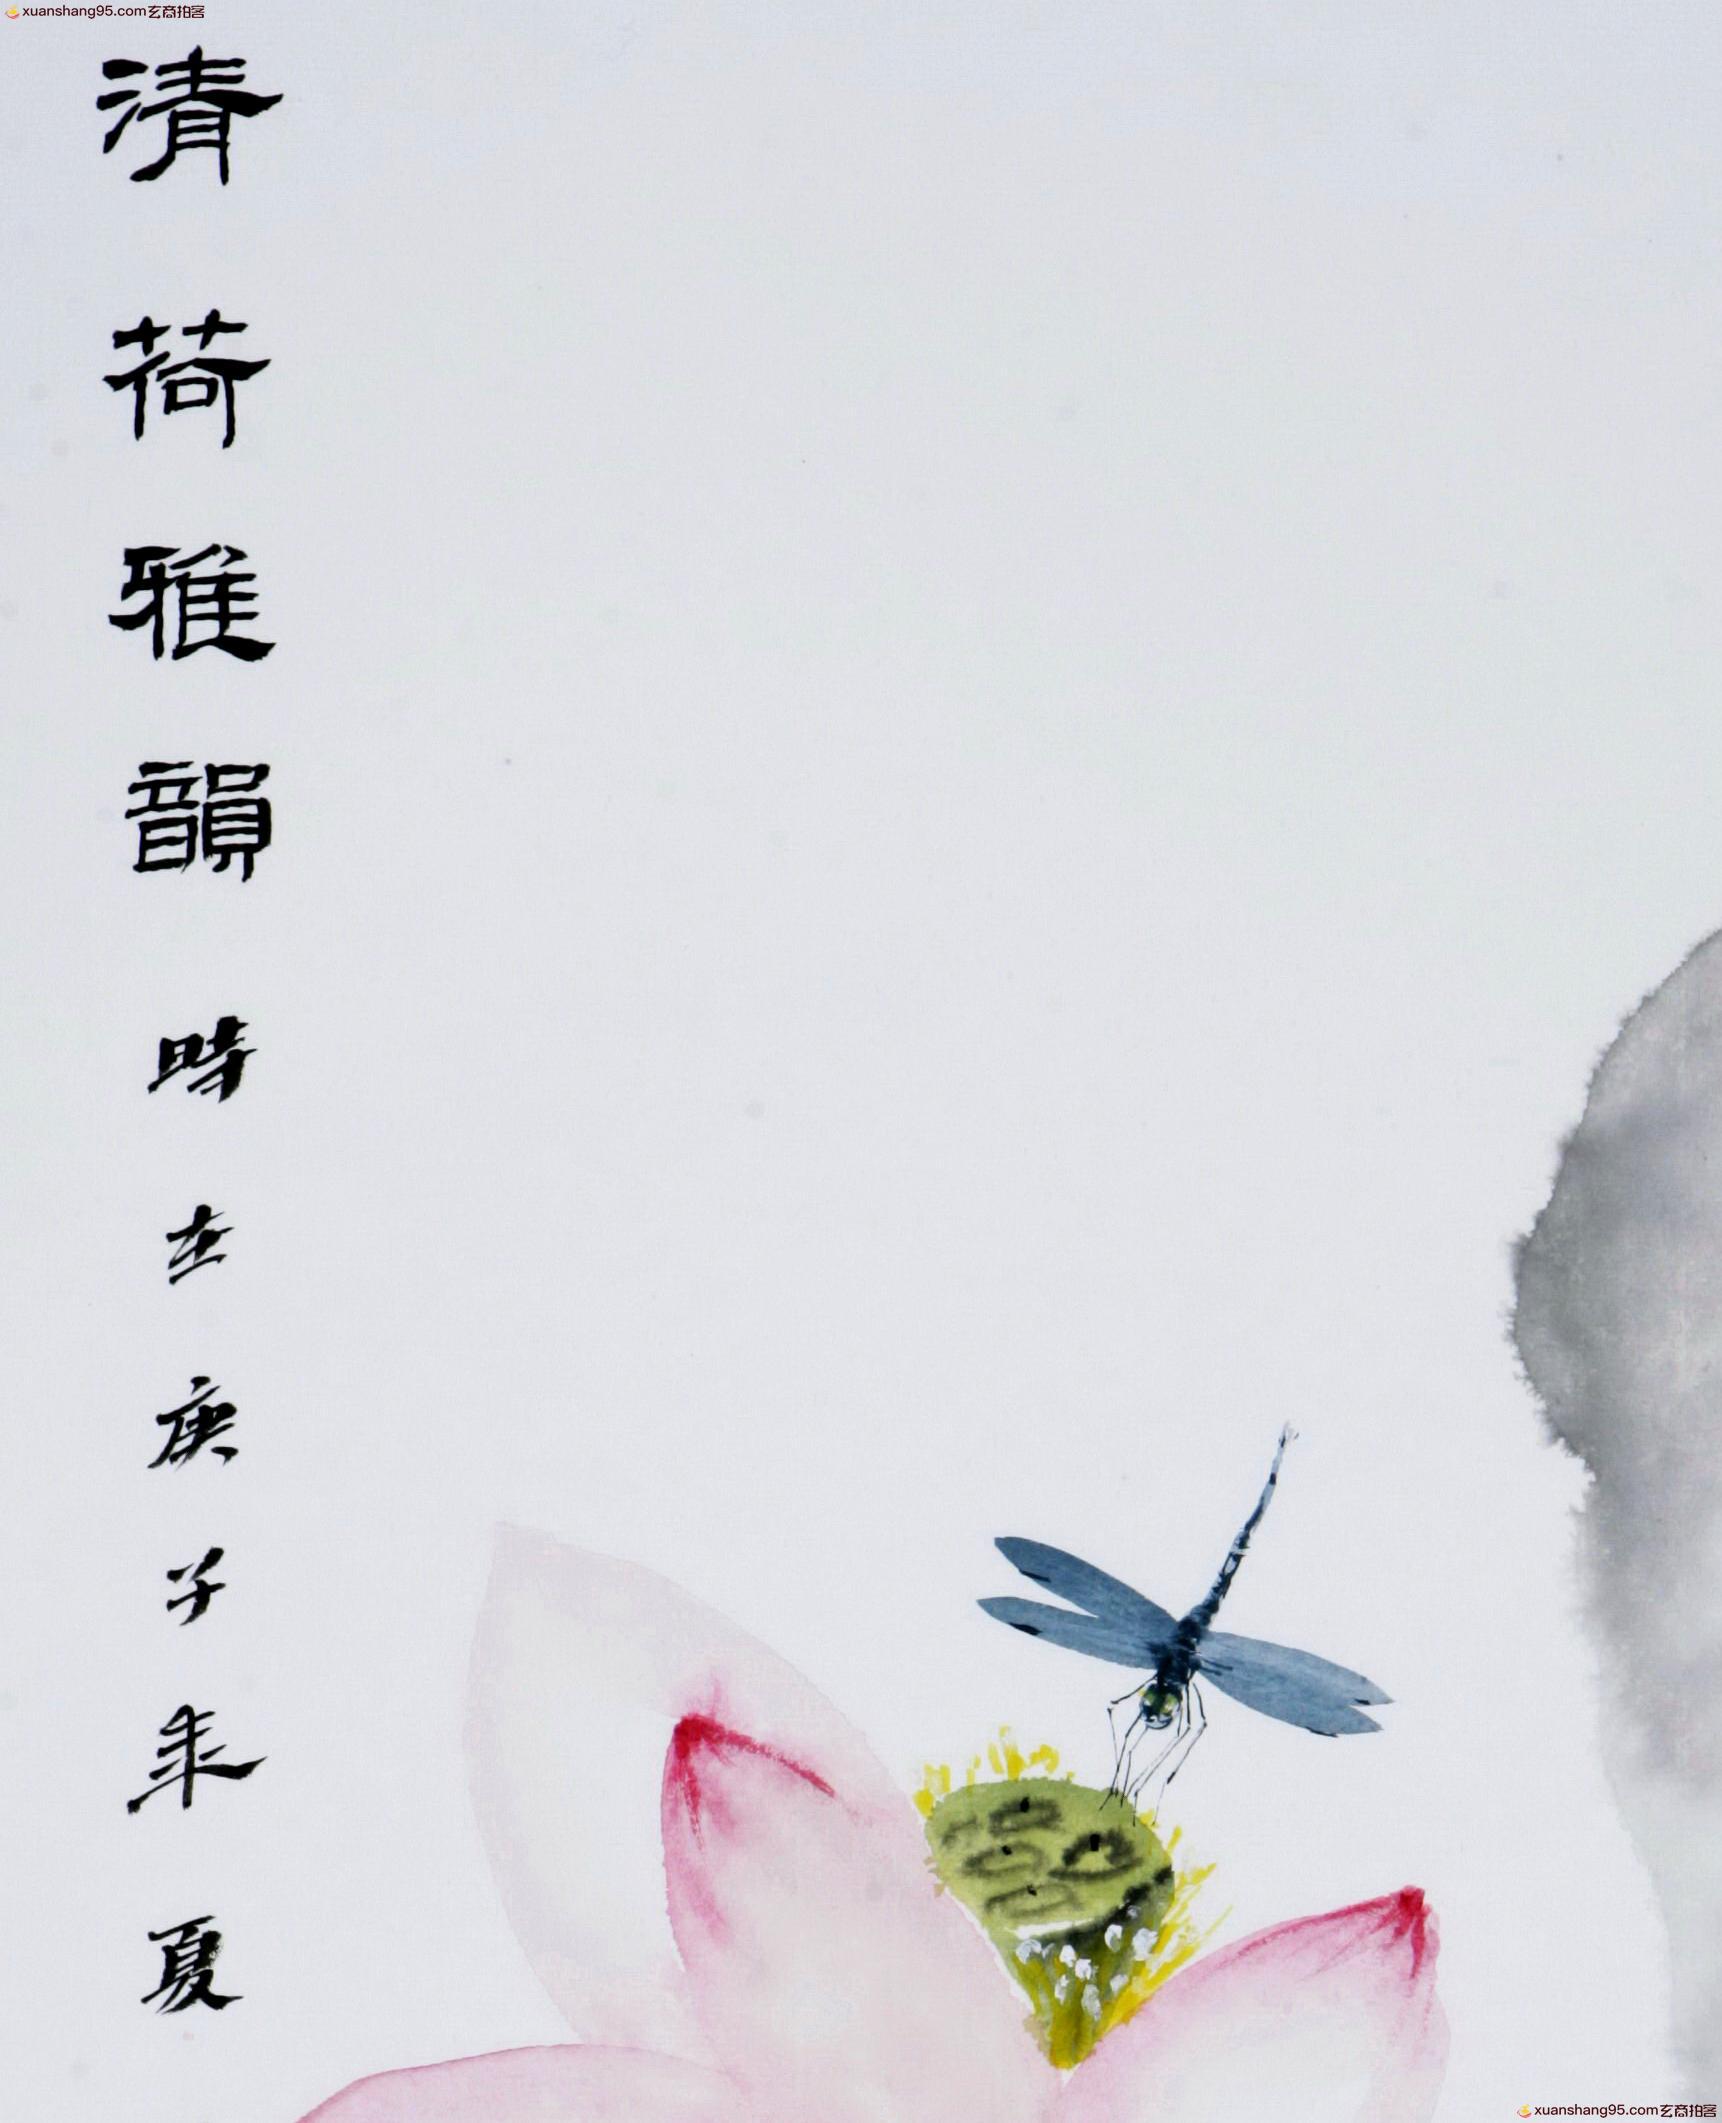 xuanshang95.com玄商拍客
清荷雅韻時在庚子年夏
xuanshang95.com玄商拍客